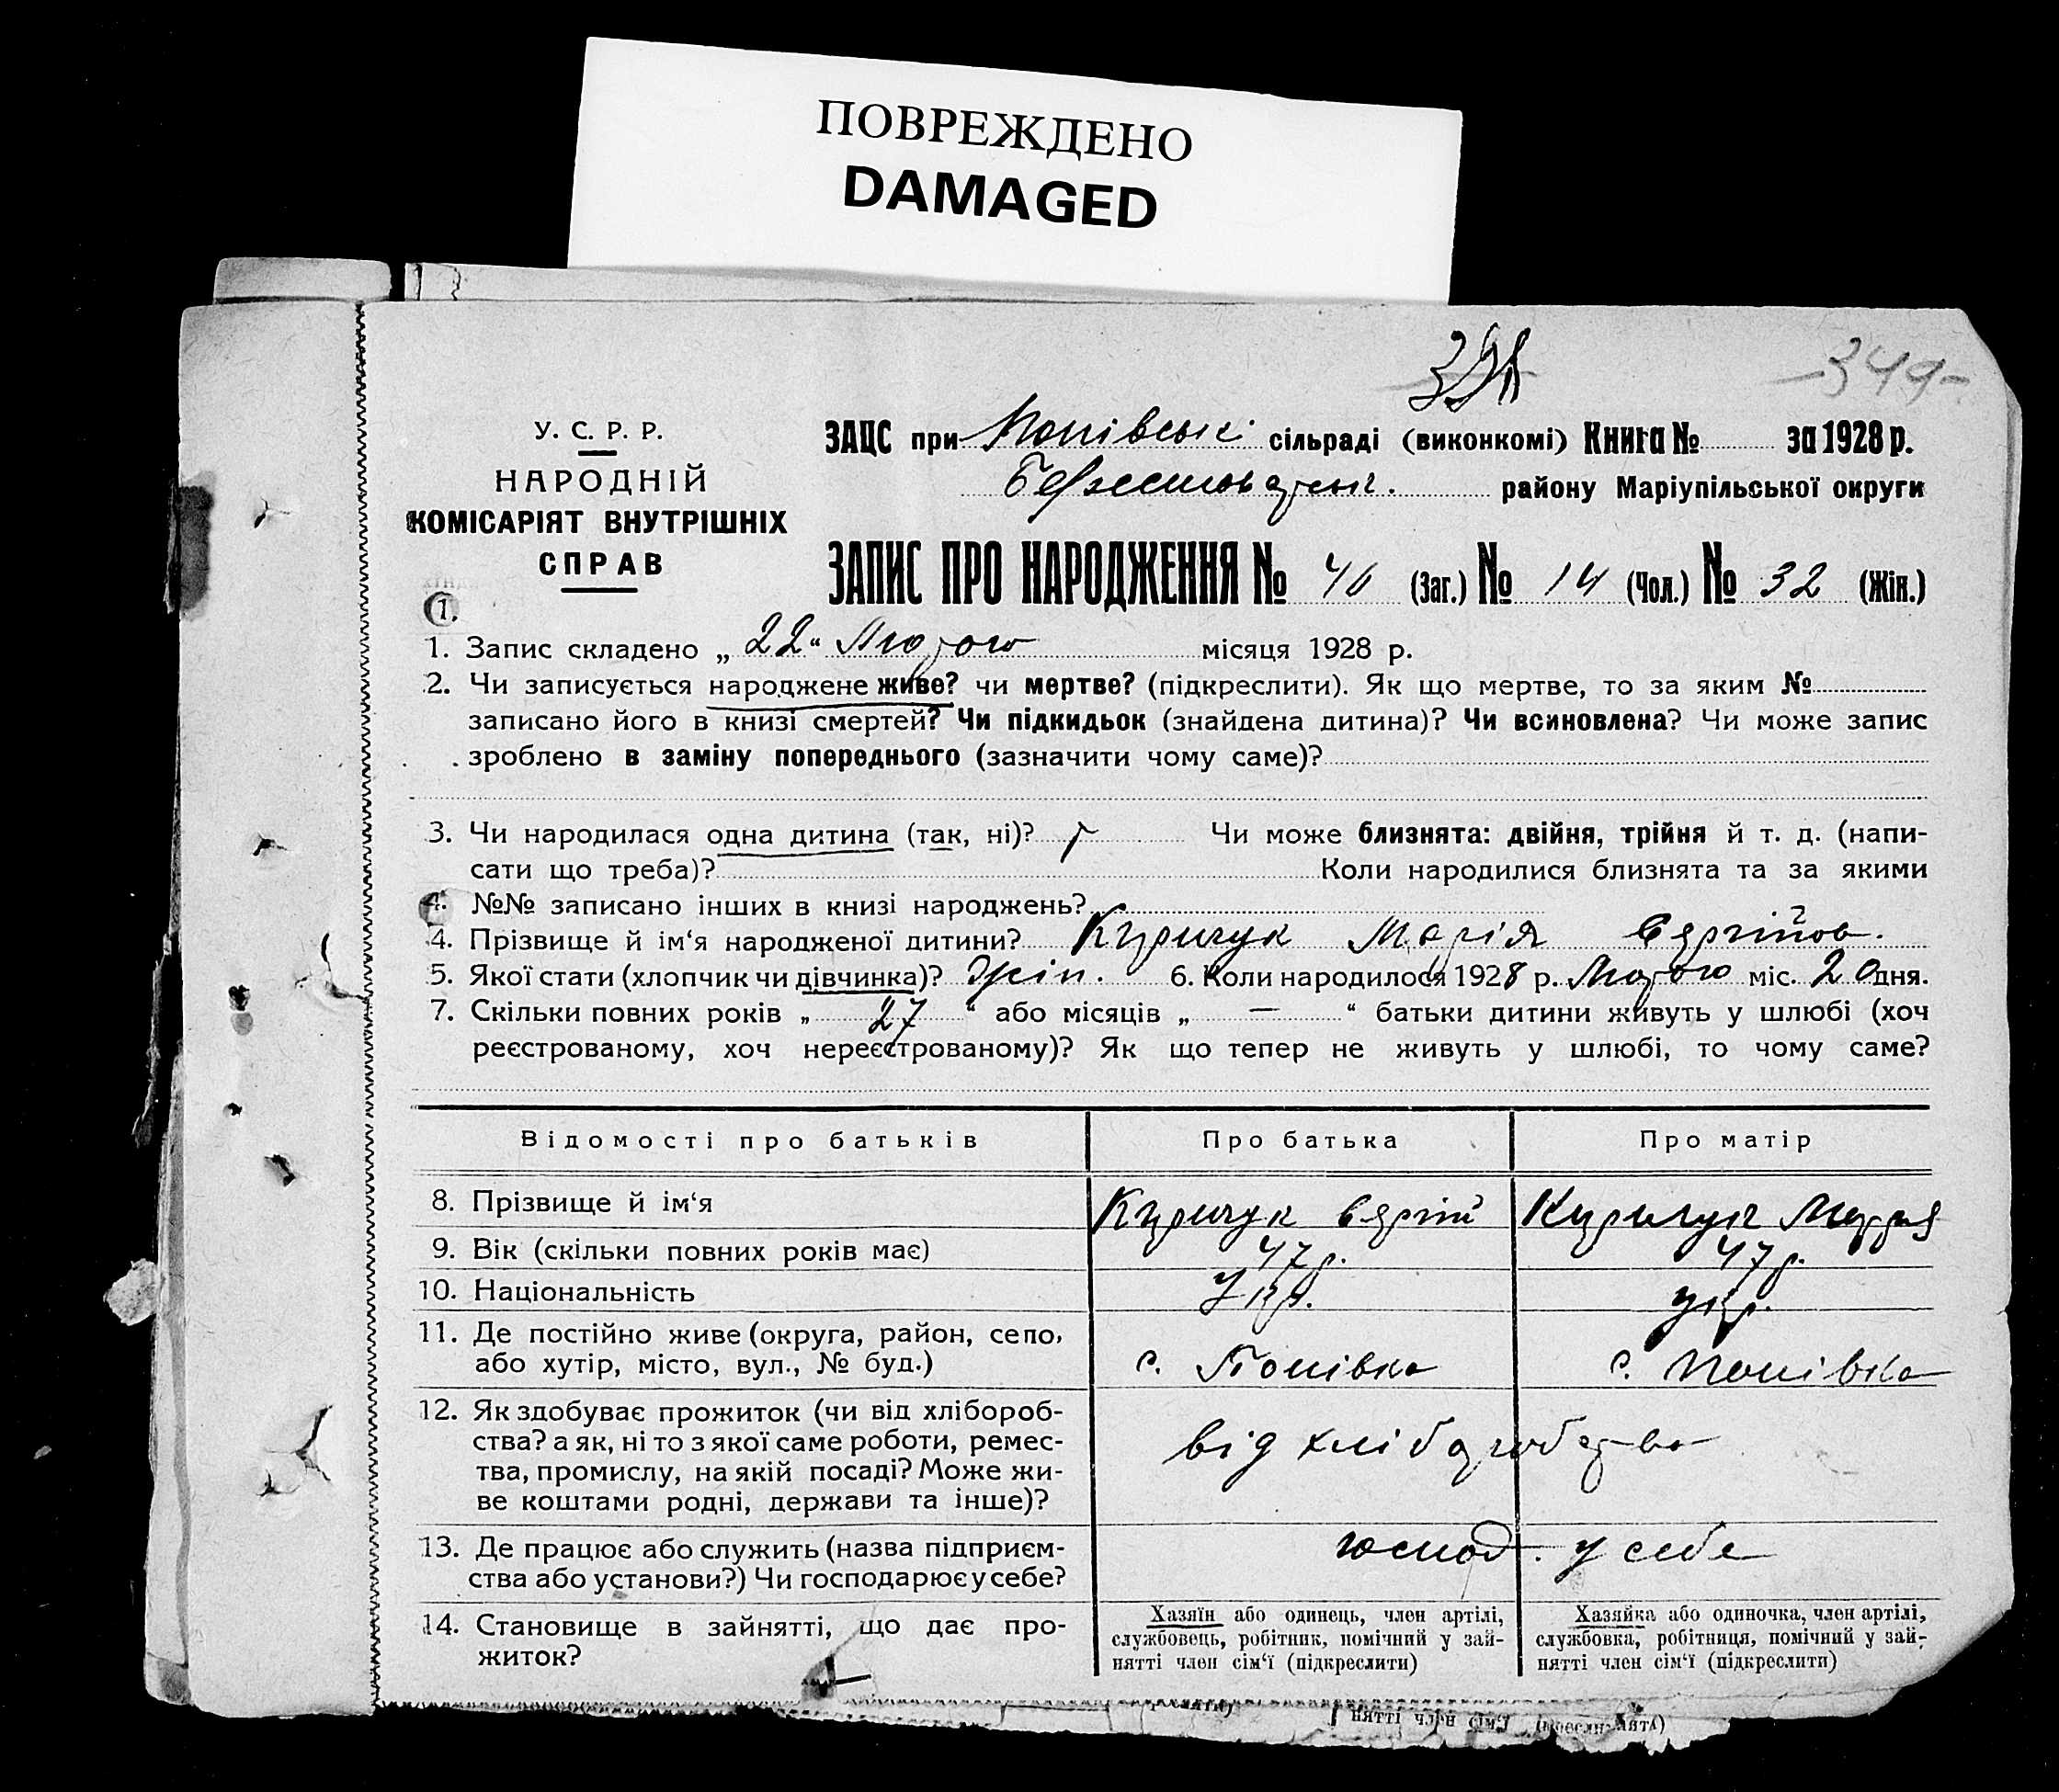 ПОВРЕЖДЕНО
DAMAGED
349-
У. С. Р. Р.
НАРОДНІЙ
КОМІСАРІЯТ ВНУТРІШНІХ
СПРАВ
ЗАЦС при Попівські сільраді (виконкомі) Книга № за 1928 р.
району Маріупільської округи
ЗАПИС ПРО НАРОДЖЕННЯ № 46 (Заг.) № 14 (Чол.) № 32 (Жін.)
1.
1. Запис складено „ 22 “ Лютого місяця 1928 р.
2. Чи записується народжене живе? чи мертве? (підкреслити). Як що мертве, то за яким №
записано його в книзі смертей? Чи підкидьок (знайдена дитина)? Чи всиновлена? Чи може запис
зроблено в заміну попереднього (зазначити чому саме)?
3. Чи народилася одна дитина (так, ні)? Чи може близнята: двійня, трійня й т. д. (напи-
сати що треба)? Коли народилися близнята та за якими
4. №№ записано інших в книзі народжень?
4. Прізвище й ім‘я народженої дитини? Марія
5. Якої стати (хлопчик чи дівчинка)? Жін. 6. Коли народилося 1928 р. Лютого міс. 20 дня.
7. Скільки повних років „ 27 “ або місяців „ — “ батьки дитини живуть у шлюбі (хоч
реєстрованому, хоч нереєстрованому)? Як що тепер не живуть у шлюбі, то чому саме?
Відомості про батьків Про батька Про матір
8. Прізвище й ім‘я Сергій
9. Вік (скільки повних років має) 47 р. 47 р.
10. Національність Укр. укр.
11. Де постійно живе (округа, район, село,
або хутір, місто, вул., № буд.) с. Попівка с. Попівка
12. Як здобуває прожиток (чи від хлібороб-
ства? а як, ні то з якої саме роботи, ремес- від хліборобства
тва, промислу, на якій посаді? Може жи-
ве коштами родні, держави та інше)?
13. Де працює або служить (назва підприєм- господ. у себе
ства або установи?) Чи господарює у себе?
14. Становище в зайнятті, що дає про-
житок?
Хазяїн або одинець, член артілі,
службовець, робітник, помічний у зай-
нятті член сім‘ї (підкреслити)
Хазяйка або одиночка, член артілі,
службовка, робітниця, помічний у зай-
нятті член сім‘ї (підкреслити)
нятті член сім‘ї